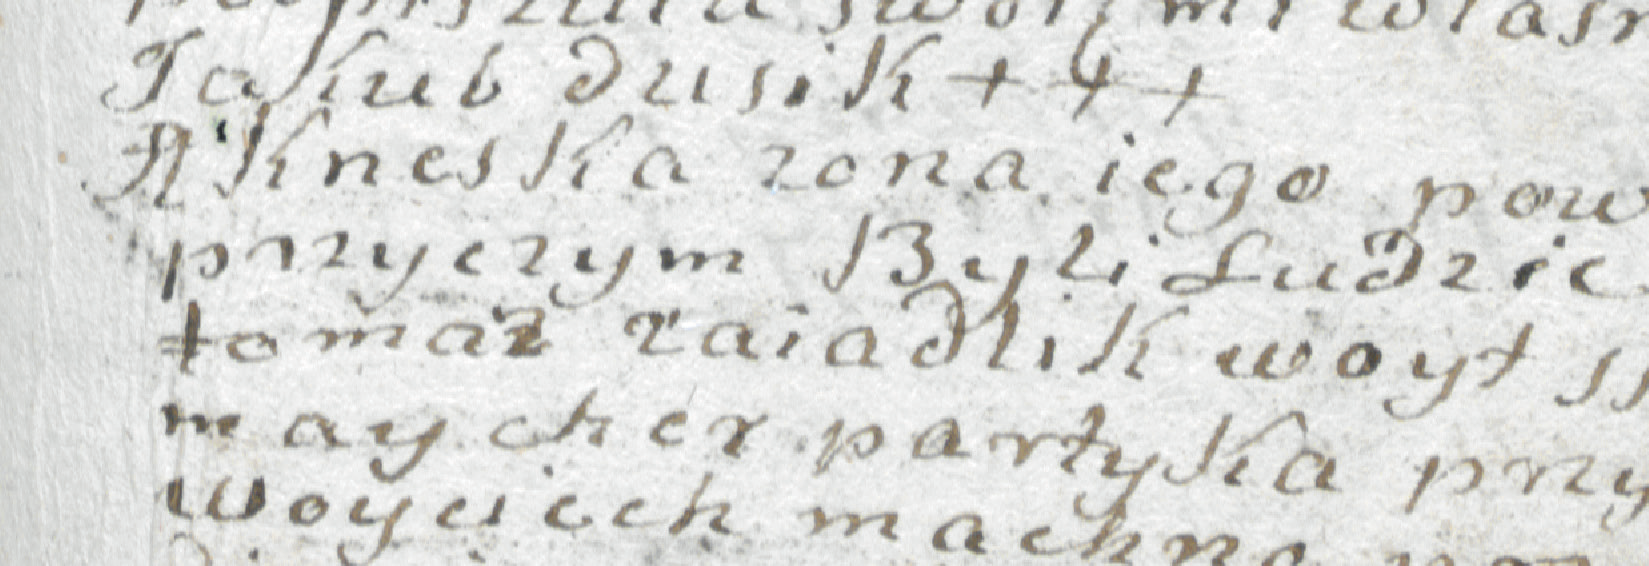 swoimi
Jakub dusik + + +
Akneska zona iego
przyczym Byli Ludzie
tomaz zaiadlik woyt
maycher partyka
woyciech machna